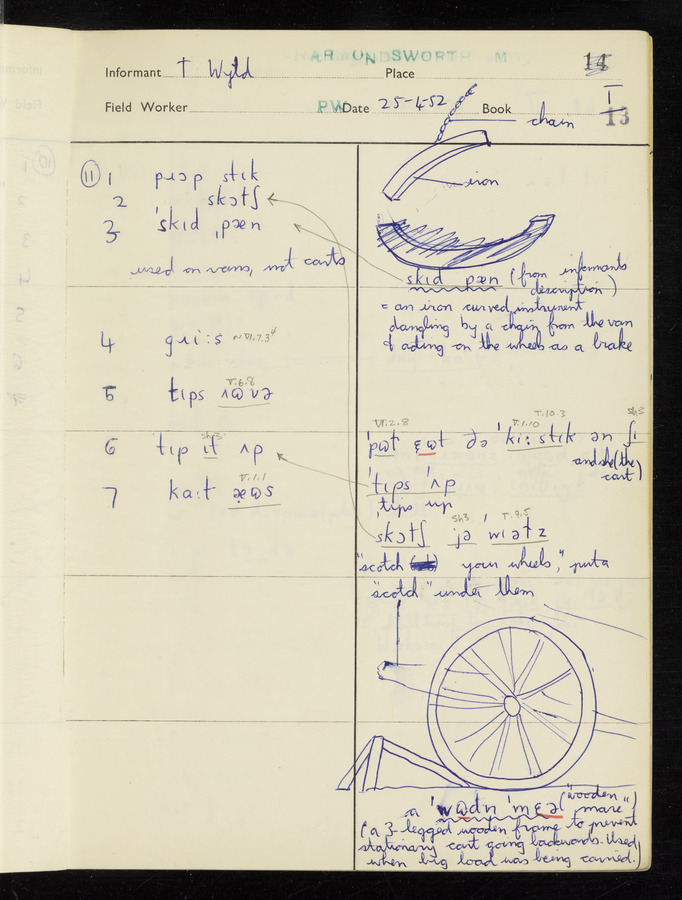 HARMONDSWORTH M
Informant T Wyld Place 14
Field Worker PW Date 25-4-52 Book I
13
chain
iron
⑪ 1 pɹɔp stɪk
2 skɔtʃ
3 ˈskɪd ˌpæn
used on vans, not carts
skɪd pæn (from informants
description)
= an iron curved instrument
dangling by a chain from the van
& acting on the wheels as a brake
4 gɹiːs ~VI.7.3
V.6.8
5 tɪps ʌɷvə
sh3
6 tɪp ɪt ʌp
V.1.1
7 kaːt æɷs
VI.2.8 V.1.10 V.10.3 sh3
ˈpɷt ɛɷt ðə ˈkiː stɪk ən ʃɪ
and she (the
cart)
ˈtɪps ˈʌp
tips up
sh3 V.9.5
ˈskɔtʃ jə ˈwɪəlz
"scotch your wheels," put a
"scotch" under them
a ˈwɷdn ˈmɛə ("wooden
mare")
(a 3-legged wooden frame to prevent
stationary cart going backwards. Used
when big load was being carried.)